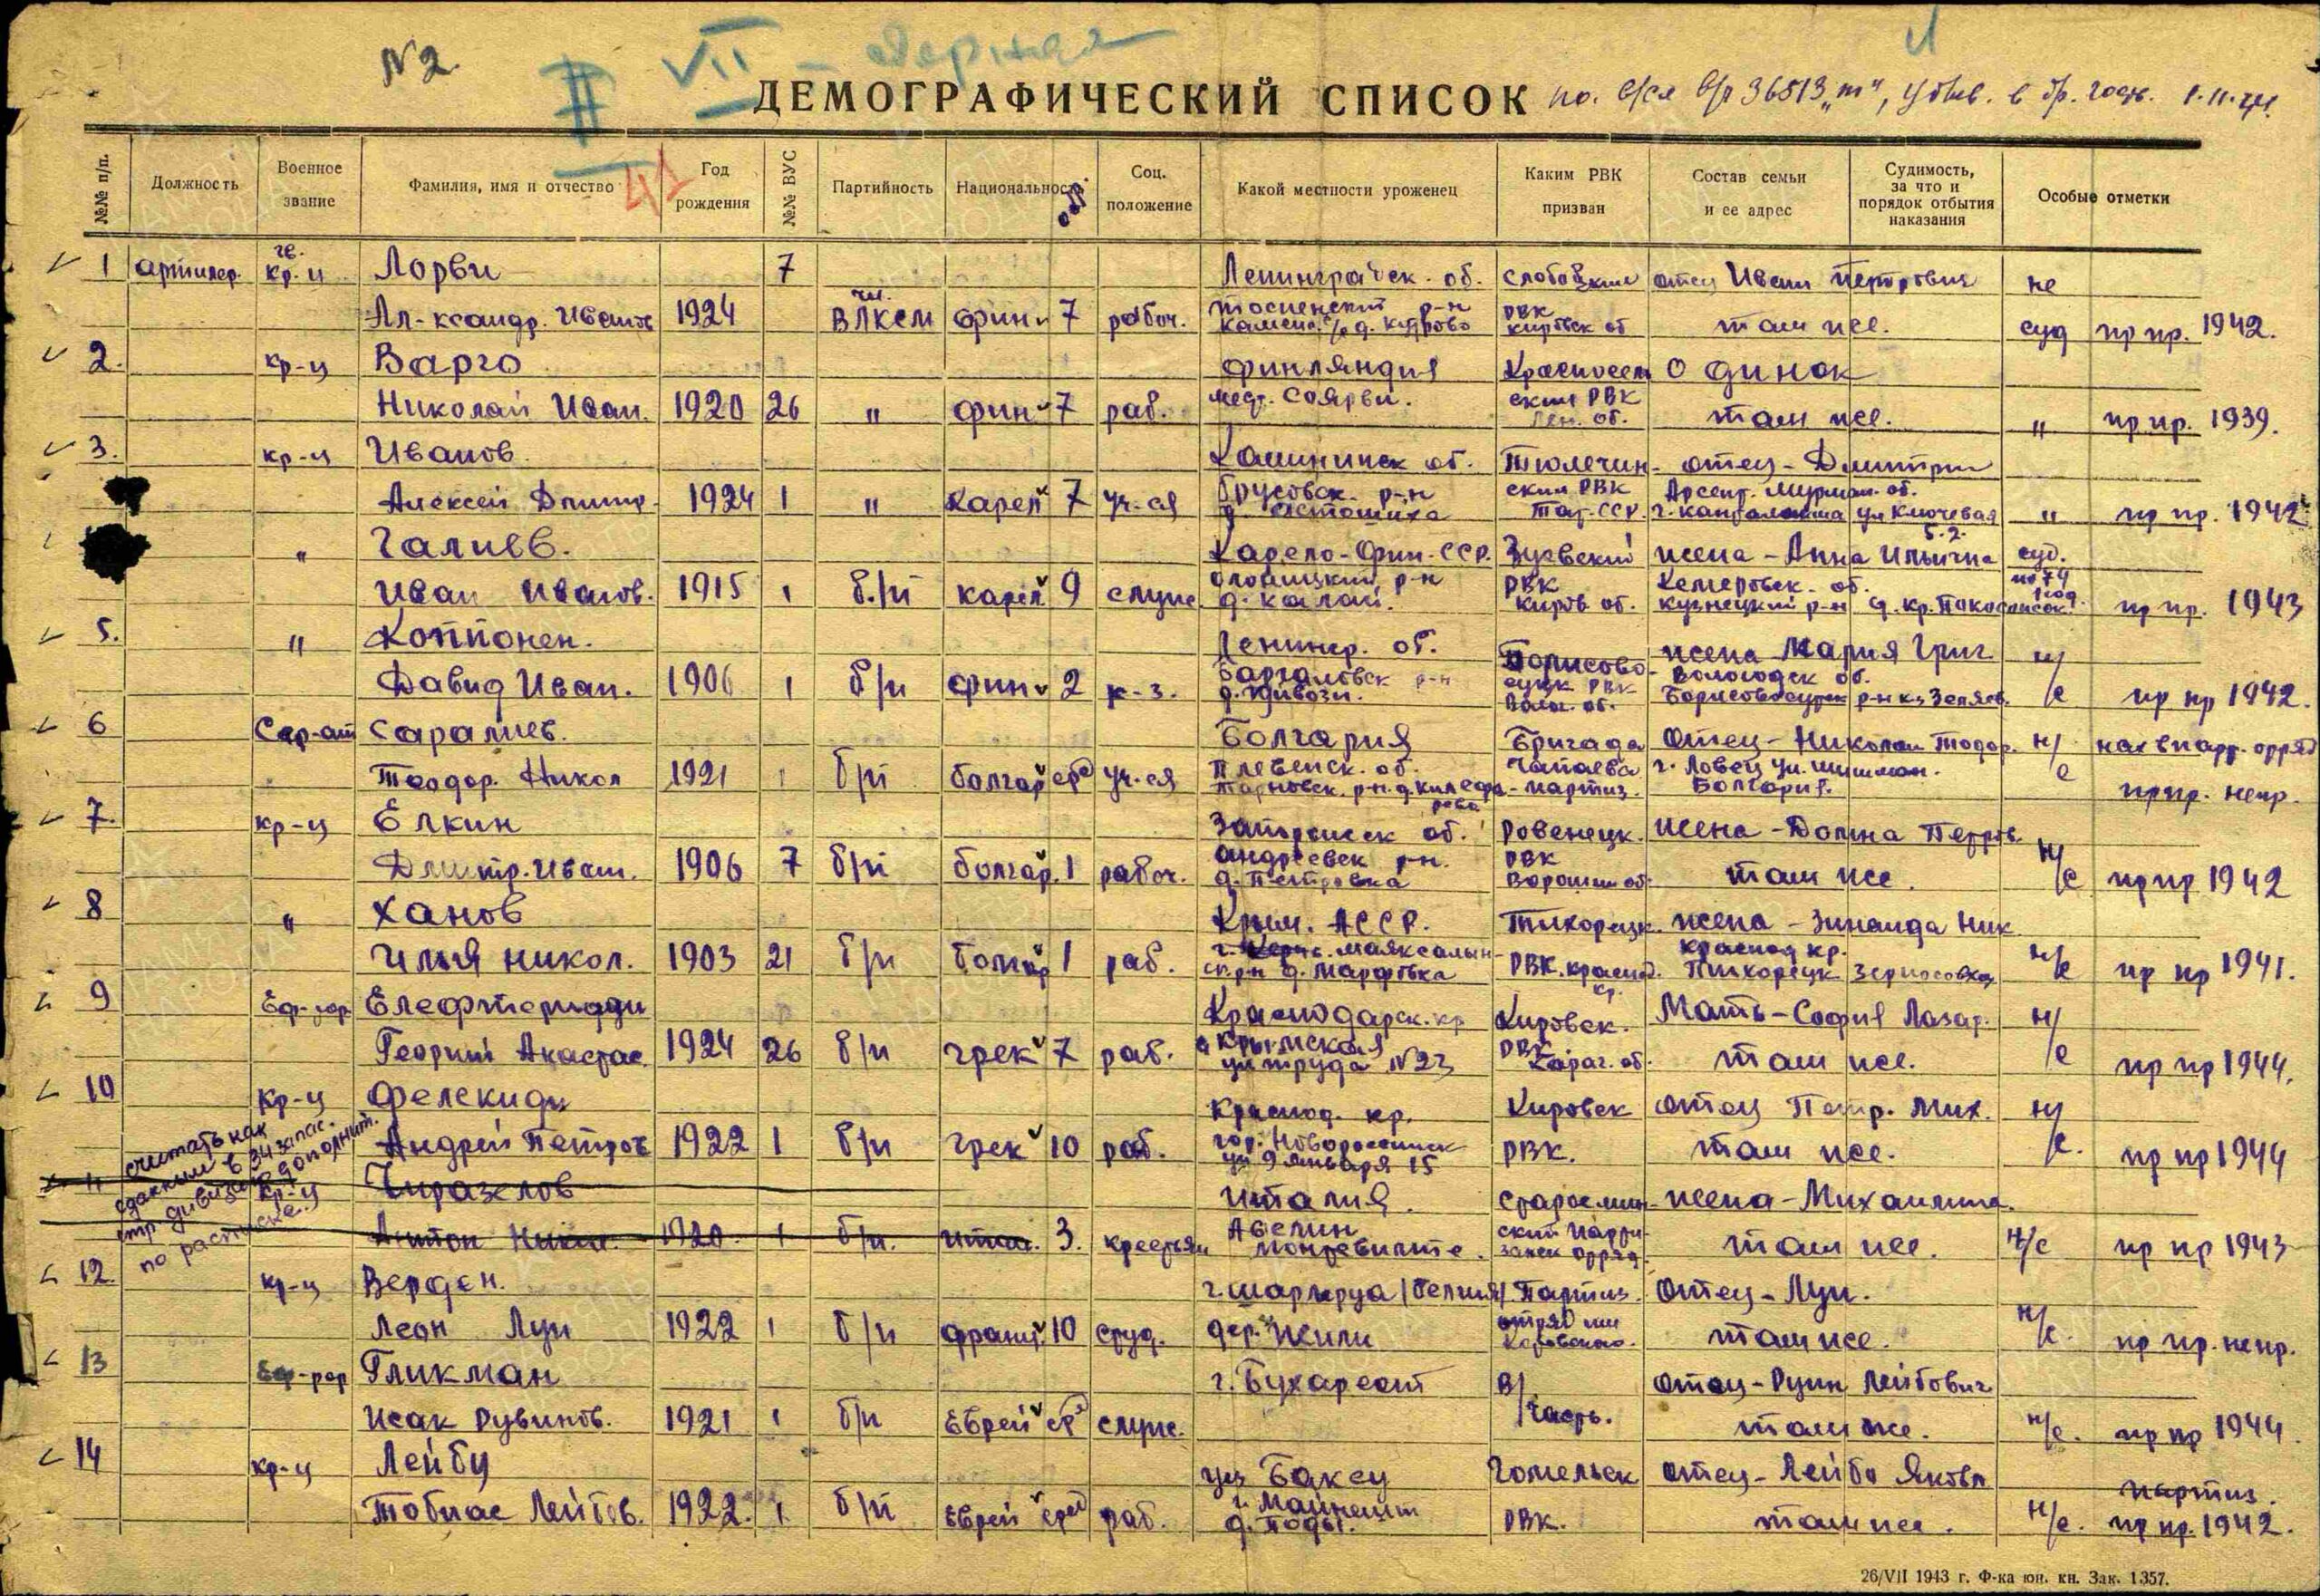 N2
VII - Черная
ДЕМОГРАФИЧЕСКИЙ СПИСОК по в/сл в/ч 36513 „т“, убыв. в др. госуд.
№№ п/п. Должность Военное звание Фамилия, имя и отчество Год рождения №№ ВУС Партийность Национальность обр. Соц. положение Какой местности уроженец Каким РВК призван Состав семьи и ее адрес Судимость, за что и порядок отбытия наказания Особые отметки
41
1 артилер. гв. кр-ц Лорви 7 Ленинградск. об. Слободским отец Иван Петрович не
Ал-ксандр. Иванов 1924 чл. ВЛКСМ фин 7 рабоч. тосненский р-н д. Кудрово РВК Кировск об там же. суд пр пр. 1942.
2. кр-ц Варго Финляндия Красносель Одинок
Николай Иван. 1920 26 " фин 7 раб. Соярви. ским РВК Лен. об. там же. " пр пр. 1939.
3. кр-ц Иванов Калининск об. Тюлечин- отец - Дмитрий
Алексей Дмитр. 1924 1 " карел 7 уч-ся брусовск. р-н д. ским РВК Тат. ССР. Арсент. Мурман. об. г. Кандалакша ул Ключевая 5.2. " пр пр. 1942
" Галиев. Карело-Фин. ССР. Зуевский жена - Анна Ильична суд.
Иван Иванов. 1915 1 б/п карел 9 служ. олоницкий р-н д. РВК Киров об. Кемеровск. об. кузнецкий р-н по 74 1 год. пр пр. 1943
5. " Коппонен. Ленингр. об. Борисово- жена Мария Григ. н/
Давид Иван. 1906 1 б/п фин 2 к-з. Парголовск р-н судск РВК Волог. об. Вологодск об. Борисовосудск р-н с. пр пр 1942.
6 Сер-ант Саралиев. Болгария Бригада отец - Николай Тодор. н/ нах в парт. отряд
Теодор. Никол 1921 1 б/п болгар срд уч-ся Плевенск. об. Чапаева партиз. г. Ловеч ул. Шишман. Болгария. с пр пр. непр.
7. кр-ц Елкин Запорожск об. Ровенецк. жена - Домна Петров.
Дмитр. Иван. 1906 7 б/п болгар. 1 рабоч. андреевск р-н. д. Петровка РВК Ворошил об. там же. н/с пр пр 1942
8 " Ханов Крым. АССР. Тихорецк. жена - Зинаида Ник
Илья Никол. 1903 21 б/п болгар 1 раб. г. Керчь. маяксалын- ск. р-н д. Марфовка РВК. краснод. кр. краснод кр. Тихорецк Зерносовхоз н/с пр пр 1941.
9 Еф-рор Елефтериади Краснодарск. кр Кировск. Мать - София Лазар. н/
Георгий Анастас. 1924 26 б/п грек 7 раб. Крымская ул труда N23 РВК Караг. об. там же. с пр пр 1944.
10 Кр-ц Фелекиди Краснод. кр. Кировск отец Петр. Мих. н/
Андрей Петров 1922 1 б/п грек 10 раб. гор. Новороссийск ул 9 января 15 РВК. там же. с. пр пр 1944
11 считать как сданным в 34 запас. стр. дивизию дополнит. по расписке. кр-ц Чиразелов Италия. Старосмин- жена - Михаилина.
Антон Никол. 1920 1 б/п. итал. 3. крестьян Авелин Монтевилте. ский партизанск отряд. там же. н/с пр пр 1943
12. кр-ц Верден. г. Шарлеруа (Белгия) Партиз. Отец - Луи.
Леон Луи 1922 1 б/п франц. 10 студ. дер. Жили отряд им Котовского. там же. н/с. пр пр. непр.
13 Еф-рор Гликман г. Бухарест В/ отец - Рувин Лейбович
Исак Рувинов. 1921 1 б/п Еврей ср служ. часть. там же. н/с. пр пр 1944
14 кр-ц Лейбу уез Бакеу Гомельск отец - Лейба Яковл партиз.
Тобиас Лейбов. 1922. 1. б/п Еврей сред раб. г. Майнешт д. Поды. РВК. там же. н/с. пр пр. 1942.
26/VII 1943 г. Ф-ка юн. кн. Зак. 1357.